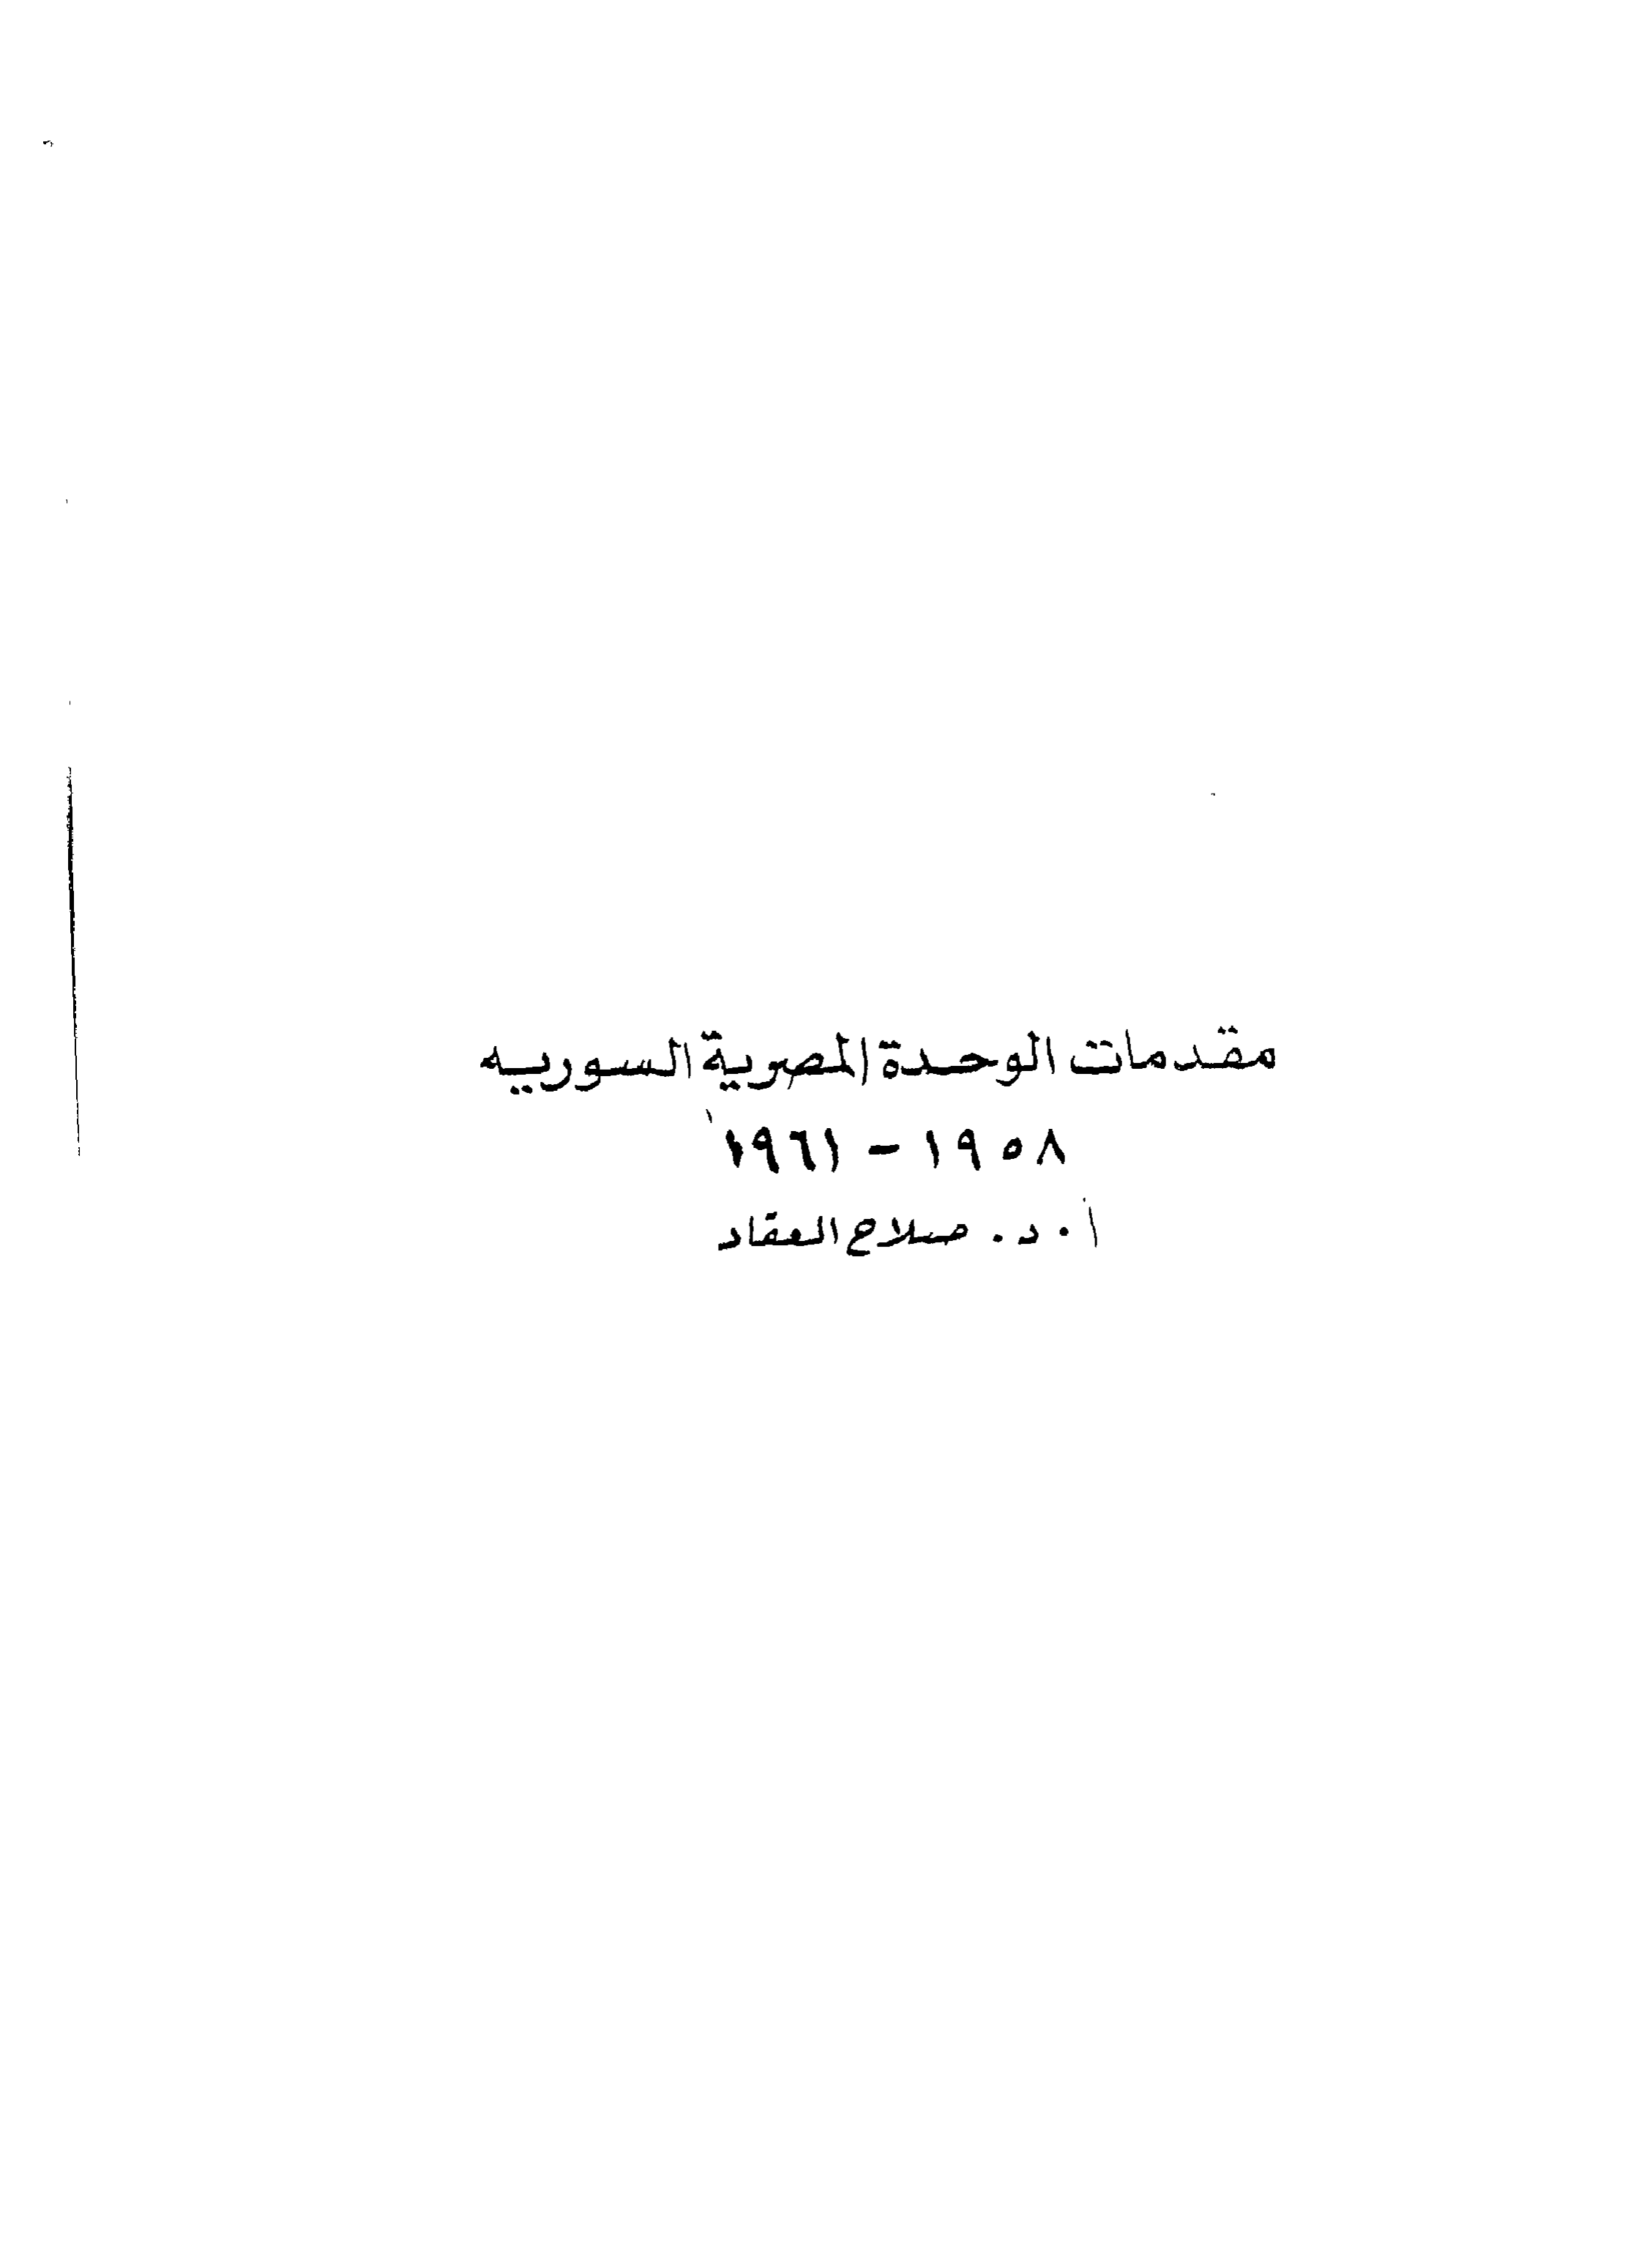 مقدمات الوحدة المصرية السوريه
١٩٥٨ - ١٩٦١
أ . د . صلاح العقاد